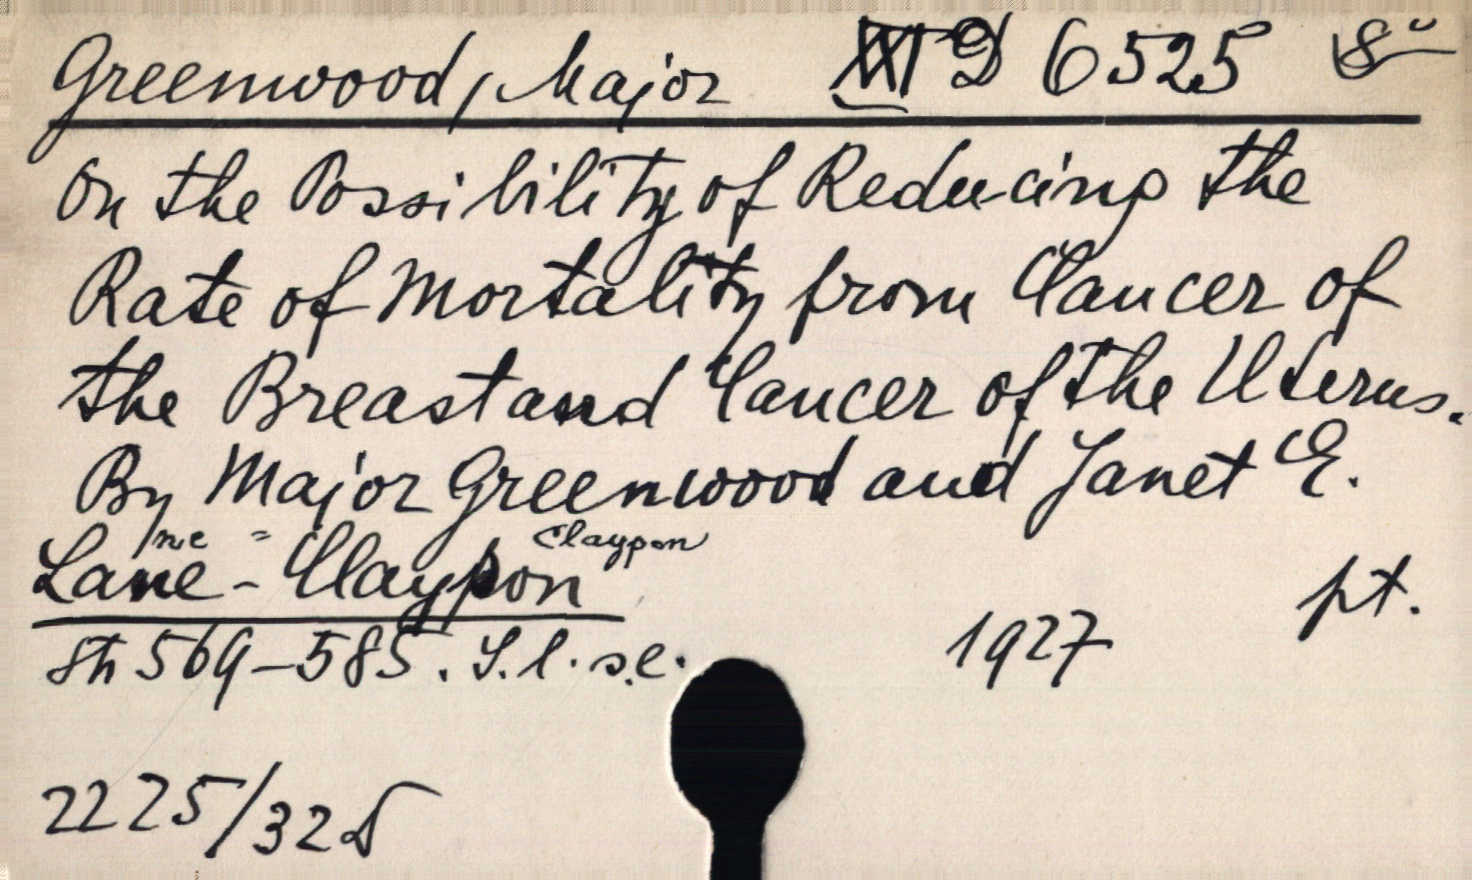 Greenwood, Major XVI D 6525 8°
On the Possibility of Reducing the
Rate of Mortality from Cancer of
the Breast and Cancer of the Uterus.
By Major Greenwood and Janet E.
ne = Claypon
Lane-Claypon
pt.
Sh 569-585. S.l. s.e. 1927
2225/32